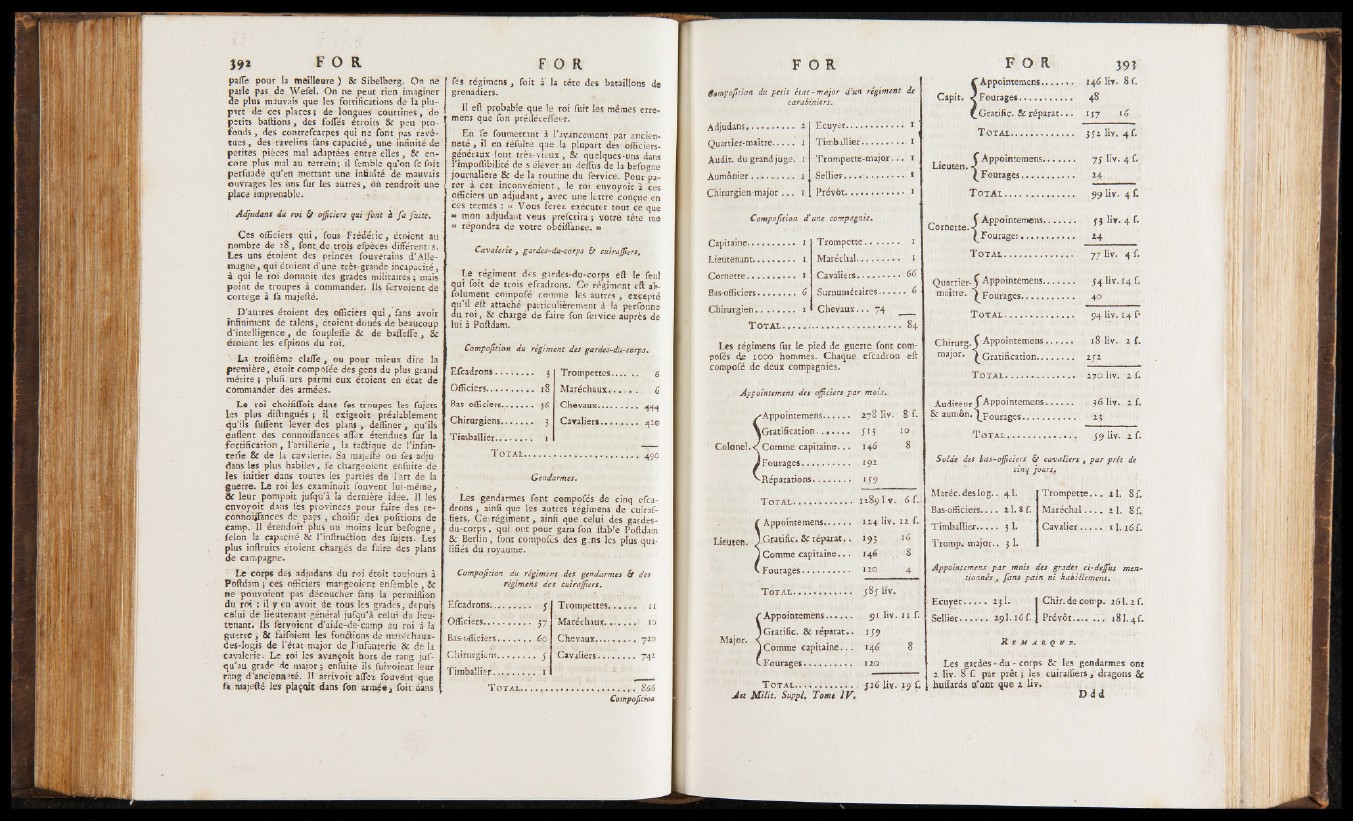 392 FOR FOR
passe pour la meilleure ) & Sibelberg. On ne
parle pas de Wesel. On ne peut rien imaginer
de plus mauvais que les fortifications de la plu-
part de ces places; de longues courtines, de
petits bastions, des fossés étroits & peu pro-
fonds, des contrescarpes qui ne sont pas revê-
tues, des ravelins sans capacité, une infinité de
petites pièces mal adaptées entre elles, & en-
core plus mal au terrein; il semble qu'on se soit
persuadé qu'en mettant une infinité de mauvais
ouvrages les uns sur les autres, on rendroit une
place imprenable.
Adjudans du roi & officiers qui sont à sa suite.
Ces officiers qui, sous Frédéric, étoient au
nombre de 28, sont de trois espèces différentes.
Les uns étoient des princes souverains d'Alle-
magne, qui étoient d'une très-grande incapacité,
à qui le roi donnoit des grades militaires; mais
point de troupes à commander. Ils servoient de
cortège à sa majesté.
D'autres étoient des officiers qui, sans avoir
infiniment de talens, étoient doués de beaucoup
d'intelligence, de souplesse & de bassesse, &
étoient les espions du roi.
La troisième classe, ou pour mieux dire la
première, étoit composée des gens du plus grand
mérite; plusieurs parmi eux étoient en état de
commander des armées.
Le roi choisissoit dans ses troupes les sujets
les plus distingués; il exigeoit préalablement
qu'ils sussent lever des plans, dessiner, qu'ils
eussent des connoissances assez étendues sur la
fortification, l'artillerie, la tactique de l'infan-
terie & de la cavalerie. Sa majesté ou ses adju-
dans les plus habiles, se chargeoient ensuite de
les initier dans toutes les parties de l'art de la
guerre. Le roi les examinoit souvent lui-même,
& leur pompoit jusqu'à la dernière idée. Il les
envoyoit dans les provinces pour faire des re-
connoissances de pays, choisir des positions de
camp. Il étendoit plus ou moins leur besogne,
selon la capacité & l'instruction des sujets. Les
plus instruits étoient chargés de faire des plans
de campagne.
Le corps des adjudans du roi étoit toujours à
Postdam; ces officiers mangeoient ensemble, &
ne pouvoient pas découcher sans la permission
du roi: il y en avoit de tous les grades, depuis
celui de lieutenant général jusqu'à celui du lieu-
tenant. Ils servoient d'aide-de-camp au roi à la
guerre; & faisoient les fonctions de maréchaux-
des-logis de l'état-major de l'infanterie & de la
cavalerie. Le roi les avançoit hors de rang jus-
qu'au grade de major; ensuite ils suivoient leur
rang d'ancienneté. Il arrivoit assez souvent que
sa majesté les plaçoit dans son armée, soit dans
ses régimens, soit à la tête des bataillons de
grenadiers.
Il est probable que le roi suit les mêmes erre-
mens que son prédécesseur.
En se soumettant à l'avancement par ancien-
neté, il en résulte que la plupart des officiers-
généraux sont très-vieux, & quelques-uns dans
l'impossibilité de s'élever au dessus de la besogne
journalière & de la routine du service. Pour pa-
rer à cet inconvénient, le roi envoyoit à ces
officiers un adjudant, avec une lettre conçue en
ces termes: « Vous ferez exécuter tout ce que
» mon adjudant vous prescrira; votre tête me
» répondra de votre obéissance. »
Cavalerie, gardes-du-corps & cuirassiers,
Le régiment des gardes-du-corps est le seul
qui soit de trois escadrons. Ce régiment est ab-
solument composé comme les autres, excepté
qu'il est attaché particulièrement à la personne
du roi, & chargé de faire son service auprès de
lui à Postdam.
Composition du régiment des gardes-du-corps.
Escadrons........ 3 Trompettes...... 6
Officiers.......... 18 Maréchaux...... 6
Bas officiers....... 36 Chevaux........ 444
Chirurgiens....... 3 Cavaliers........ 420
Timballier........ 1
TOTAL.................... 490
Gendarmes.
Les gendarmes sont composés de cinq esca-
drons, ainsi que les autres régimens de cuiras-
siers. Ce régiment, ainsi que celui des gardes-
du-corps, qui ont pour garnison stable Postdam
& Berlin, sont composés des gens les plus qua-
lifiés du royaume.
Composition du régiment des gendarmes & des
régimens des cuirassiers.
Escadrons......... 5 Trompettes...... 11
Officiers.......... 37 Maréchaux....... 10
Bas-officiers....... 60 Chevaux........ 720
Chirurgiens........ 5 Cavaliers........ 742
Timballier......... 1
TOTAL.................... 866
Composition
FOR FOR 393
Composition du petit état-major d'un régiment de
carabiniers.
Adjudans.......... 2 Ecuyer............ 1
Quartier-maître..... 1 Timballier.......... 1
Audit. du grand juge. 1 Trompette-major... 1
Aumônier......... 1 Sellier............ 1
Chirurgien-major... 1 Prévôt............ 1
Composition d'une compagnie.
Capitaine.......... 1 Trompette....... 1
Lieutenant......... 1 Maréchal......... 1
Cornette.......... 1 Cavaliers......... 66
Bas-officiers........ 6 Surnuméraires...... 6
Chirurgien......... 1 Chevaux... 74
TOTAL.................... 84
Les régimens sur le pied de guerre sont com-
posés de 1000 hommes. Chaque escadron est
composé de deux compagnies.
Appointemens des officiers par mois.
Appointemens...... 278 liv. 8 s.
Gratification....... 513 10
Colonel. Comme capitaine... 146 8
Fourages.......... 192
Réparations........ 159
TOTAL............ 1289 l v. 6 s.
Appointemens...... 124 liv. 12 s.
Lieuten. Gratific. & réparat.. 193 16
Comme capitaine... 146 8
Fourages.......... 120 4
TOTAL............ 585 liv.
Appointemens...... 91 liv. 11 s.
Major. Gratific. & réparat.. 159
Comme capitaine... 146 8
Fourages.......... 120
TOTAL............ 526 liv. 19 s.
Art Milit. Suppl. Tome IV.
Appointemens....... 146 liv. 8 s.
Capit. Fourages........... 48
Gratific. & réparat... 157 16
TOTAL............. 352 liv. 4 s.
Lieuten. Appointemens....... 75 liv. 4 s.
Fourages........... 24
TOTAL............. 99 liv. 4 s.
Cornette. Appointemens....... 53 liv. 4 s.
Fourages........... 24
TOTAL............. 77 liv. 4 s.
Quartier- Appointemens....... 54 liv. 14 s.
maître. Fourages........... 40
TOTAL............. 94 liv. 14 s.
Chirurg. Appointemens...... 18 liv. 2 s.
major. Gratification........ 252
TOTAL............. 270 liv. 2 s.
Auditeur Appointemens...... 36 liv. 2 s.
& aumôn. Fourages........... 23
TOTAL............. 59 liv. 2 s.
Solde des bas-officiers & cavaliers, par prêt de
cinq jours.
Maréc. des log.. 4 l. Trompette... 2 l. 8 s.
Bas-officiers.... 2 l. 8 s. Maréchal.... 2 l. 8 s.
Timballier..... 3 l. Cavalier..... 1 l. 16 s.
Tromp. major.. 3 l.
Appointemens par mois des grades ci-dessus men-
tionnés, sans pain ni habillement.
Ecuyer..... 23 l. Chir. de comp. 26 l. 2 s.
Sellier...... 29 l. 16 s. Prévôt....... 18 l. 4 s.
REMARQUE.
Les gardes-du-corps & les gendarmes ont
2 liv. 8 s. par prêt; les cuirassiers, dragons &
hussards n'ont que 2 liv.
Ddd